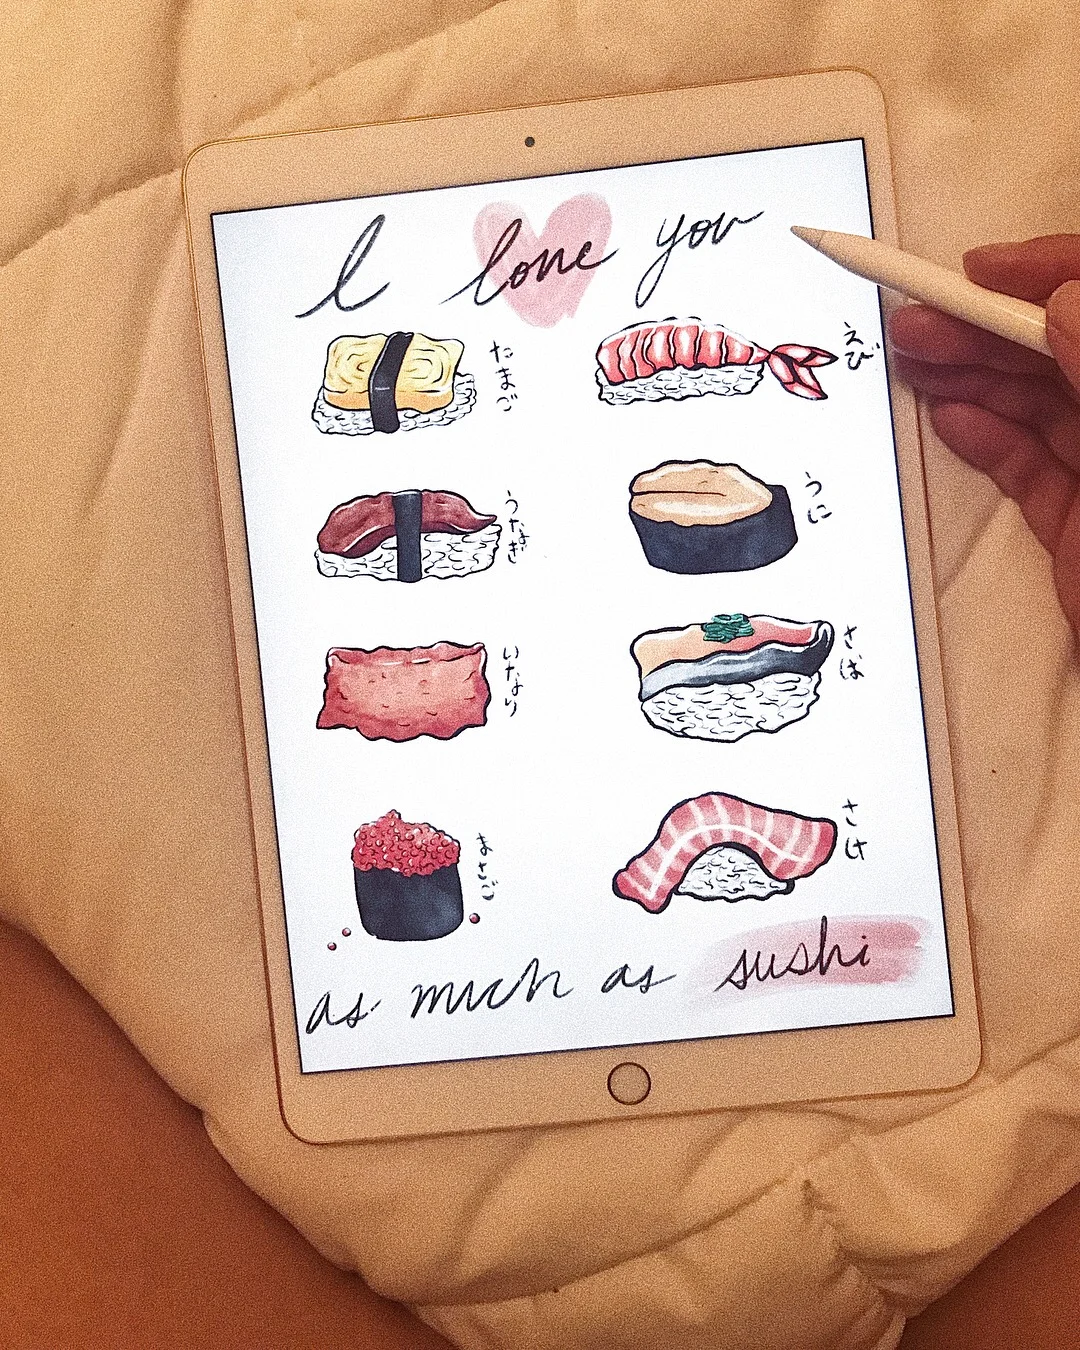 I love you
たまご
えび
うなぎ
うに
いなり
さば
まさご
さけ
as much as sushi